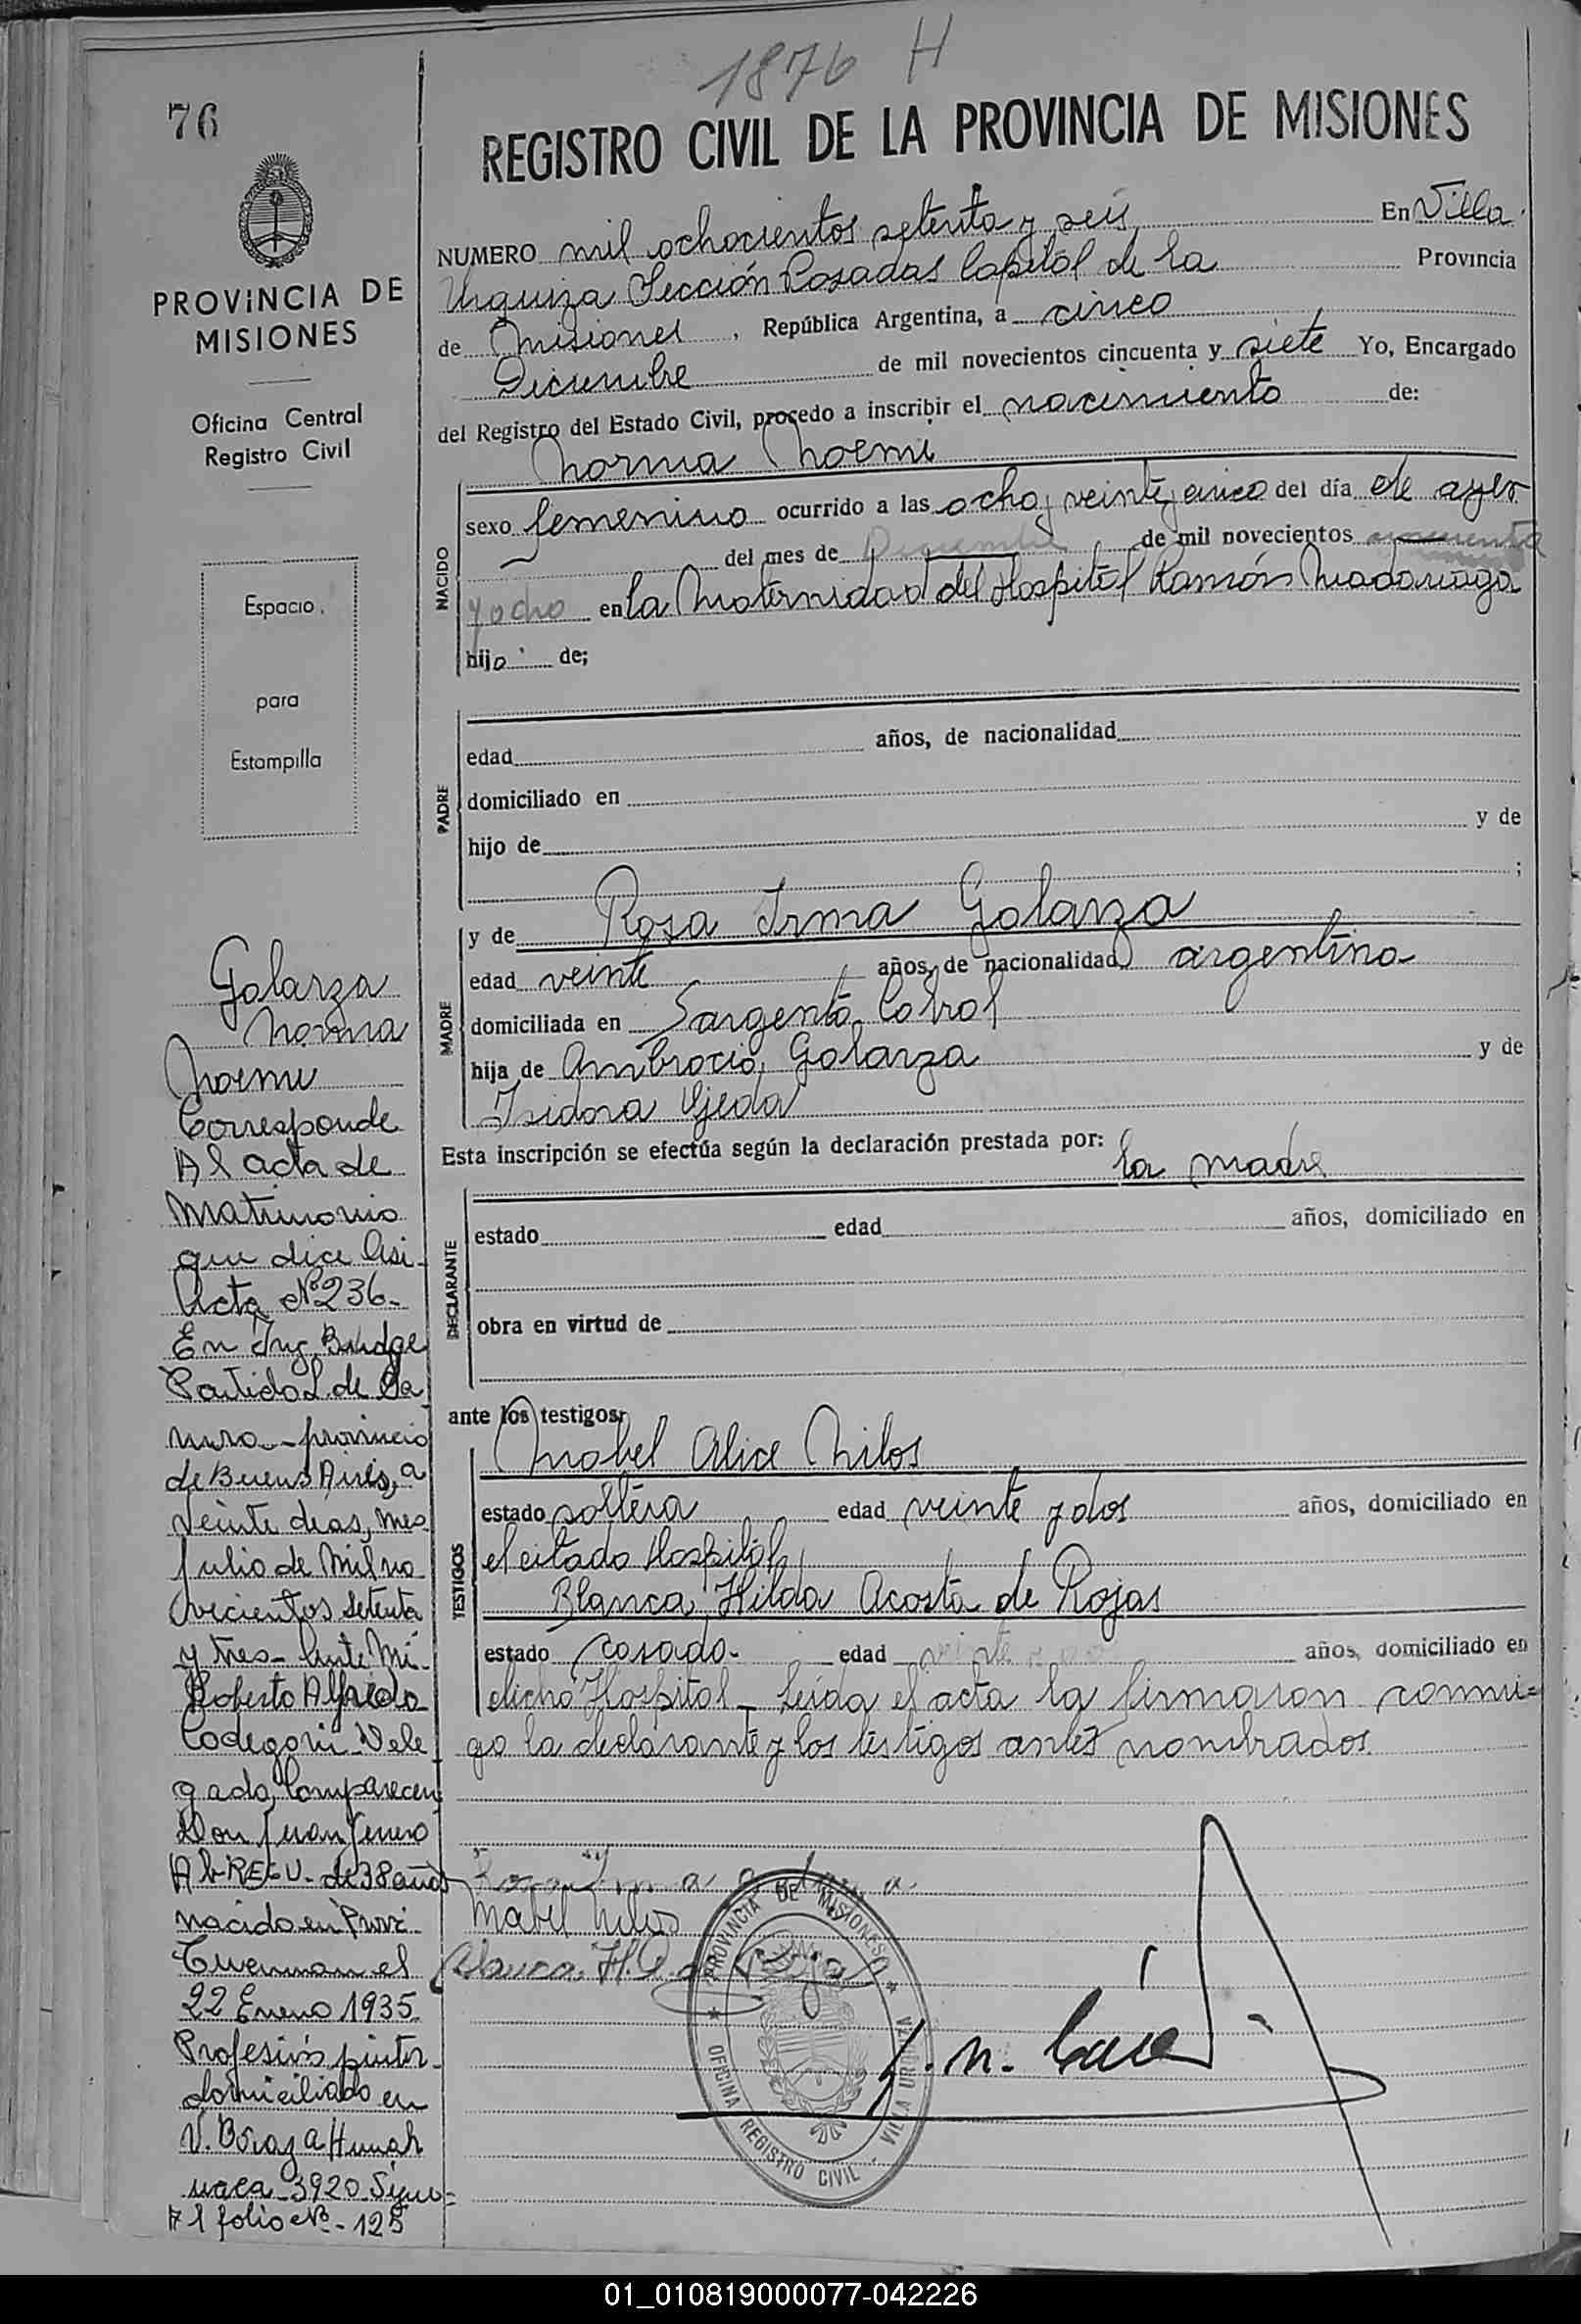 1876 H
76
REGISTRO CIVIL DE LA PROVINCIA DE MISIONES
PROVINCIA DE
MISIONES
Oficina Central
Registro Civil
Espacio
para
Estampilla
NUMERO mil ochocientos setenta y seis En Villa
Urquiza Sección Posadas Capital de la Provincia
de Misiones, República Argentina, a cinco
Diciembre de mil novecientos cincuenta y siete Yo, Encargado
del Registro del Estado Civil, procedo a inscribir el nacimiento de:
Norma Noemi
NACIDO
sexo femenino ocurrido a las ocho y veinte y cinco del día de ayer
del mes de Diciembre de mil novecientos cincuenta
y ocho en la Maternidad del Hospital Ramón Madariaga
hija de;
PADRE
edad años, de nacionalidad
domiciliado en
hijo de y de
;
MADRE
y de Rosa Irma Golarza
edad veinte años, de nacionalidad argentina
domiciliada en Sargento Cabral
hija de Ambrocio Golarza y de
Isidora Ojeda
Esta inscripción se efectúa según la declaración prestada por: la madre
DECLARANTE
estado edad años, domiciliado en
obra en virtud de
ante los testigos:
TESTIGOS
Mabel Alice Nilos
estado soltera edad veinte y dos años, domiciliado en
el citado Hospital
Blanca Hilda Acosta de Rojas
estado casada- edad veinte años, domiciliado en
dicho Hospital - Leida el acta la firmaron conmi=
go la declarante y los testigos antes nombrados.
Mabel Nilos
Blanca H. A. de Rojas
PROVINCIA DE MISIONES
OFICINA REGISTRO CIVIL - VILLA URQUIZA
Golarza
Norma
Noemi
Corresponde
Al acta de
Matrimonio
que dice Asi-
Acta Nº 236-
En Ing. Budge
Partido L. de Za
mora - provincia
de Buenos Aires, a
veinte dias, mes
Julio de Mil no
vecientos setenta
y tres- Ante Mi-
Roberto Alfredo
Codegoni - Dele
gado, Comparecen
Don Juan Genero
AbREGU- de 38 años
nacido en Provi.
Tucuman el
22 Enero 1935.
Profesión pintor-
domiciliado en
V. Boraz a Humah
uaca 3920 Sigue=
Al folio Nº - 125
01_010819000077-042226